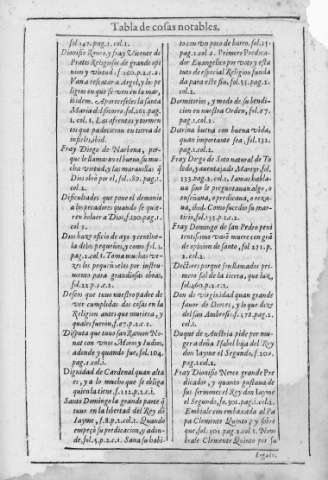 Tabla de cosas notables.
fol.247.pag.1.col.1.
Dionisio Roneo, y fray Vicente de
Prato Religiosos de grande opi
nion y virtud. fol.200.p.2.c.2.
Van a rescatar a Argel, y los pe
ligros en que se ven en la mar,
ibidem. Apareceseles la santa
Maria del socorro, fol.203.pag.
1.col.1. Las afrentas y tormen
tos que padecieron en tierra de
infieles, ibid.
Fray Diego de Narbona, por-
que le llamaron el
virtud, y las marauillas q̃
Dios obrò por el, fol.180.pag.1.
col.2.
Dificultades que pone el demonio
a los pecadores quando se quie-
ren boluer a Dios, fol.290.pag.
1.col.2.
Dios haze oficio de ayo y centine-
la de los pequeños, y como, fol.3.
pag.2.col.1. Toma muchas ve-
zes los pequeñuelos por instru-
mento para grandiosas obras,
fol.22.p.1.c.2.
Deseos que tuuo nuestro padre de
ver cumplidas
Religion antes que muriera, y
quales fueron, f.87.p.2.c.1.
Disputa que tuuo san Ramon No-
nat con vnos Moros y Iudios,
adonde y quando fue, fol.104.
pag.2.col.1.
Dignidad de Cardenal quan alta
es, y a lo mucho que se obliga
quien la tiene, f.122.p.2.c.1.
Santo Domingo la grande parte q̃
tuuo en la libertad del Rey do
Iayme, f.8.p.2.col.1. Quando
empeçò su predicacion, y adon-
de, fol.5.p.2.c.1. Sana su habi-
to en vn poço de barro. fol.15.
pag.2.col.2. Primero Predica-
dor Euangelico por voto y esta
tuto de especial Religion funda
da para este fin, fol.35.pag.1.
col.2.
Dormitorios, y modo de su bendi-
cion en nuestra Orden, fol.87.
pag.2.col.1.
Dotrina buena con buena vida,
quan importante sea, fol.132.
pag.2.col.1.
Fray Diego de Soto natural de To
ledo, y auentajado Martyr fol.
233.pag.2.col.2. Iamas habla-
ua sino le preguntauan algo, o
enseñaua, o predicaua, o reza-
ua, ibid. Como sucedio su mar-
tirio, fol.235.p.1.c.2.
Fray Domingo de san Pedro peni
tentissimo varon muere con grã
de opinion de santo, fol 271.p.
2.col.2.
Doctores porque son llamados pri-
mero sal de la tierra, que luz,
fol.260.p.2.c.2.
Don de virginidad quan grande
fauor de Dios es, y lo que dize
del san Ambrosio. f.278.pag.2.
col.2.
Duque de Austria pide por mu-
gera doña Isabel hija del Rey
don Iayme el Segundo, f 209.
pag.2.col.1.
Fray Dionisio Neroo grande Pre
dicador, y quanto gustaua de
sus sermones el Rey don Iayme
el Segundo, fo.301.pag.1.col.1.
Embiale con embaxada al Pa
pa Clemente Quinto, y sobre
que, fol.301.pag.2.col.1. Nom
brale Clemente Quinto por su
Legado.